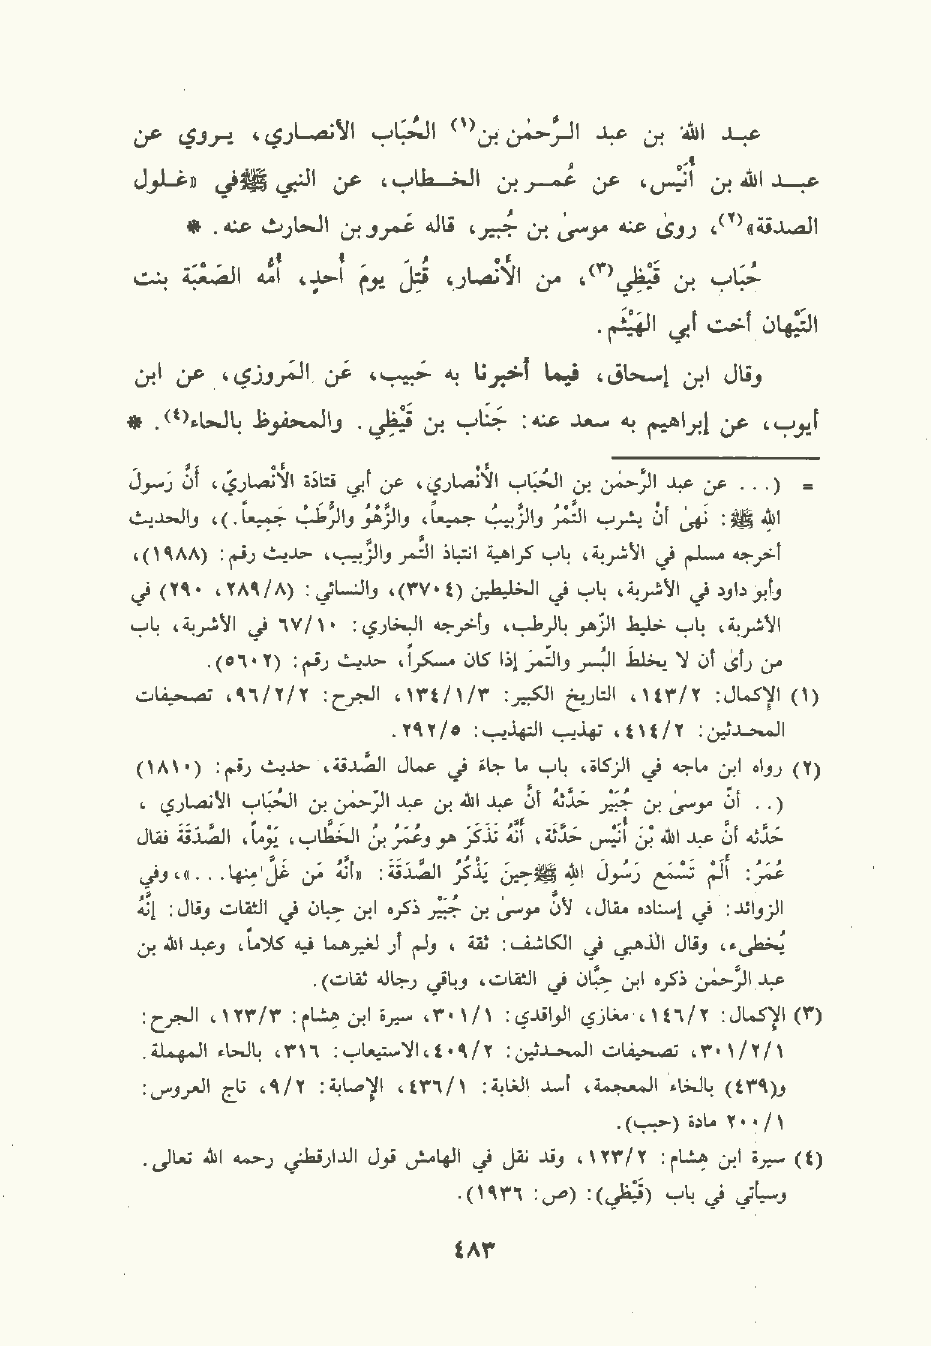 عبـد الله بن عبد الـرَّحمٰن بن(١) الحُبَاب الأنصـاري، يـروي عن
عبـد الله بن أُنَيْس، عن عُمـر بن الخـطاب، عن النبي ﷺ في «غـلول
الصدقة»(٢)، روىٰ عنه موسىٰ بن جُبير، قاله عَمرو بن الحارث عنه. *
حُبَاب بن قَيْظِي(٣)، من الأَنْصار، قُتِلَ يومَ أُحدٍ، أُمّه الصَعْبَة بنت
التَّيْهان أخت أبي الهَيْثَم.
وقال ابن إسحاق، فيما أخبرنا به حَبيب، عَن المَروزي، عن ابن
أيوب، عن إبراهيم به سعد عنه: جَنَاب بن قَيْظِي. والمحفوظ بالحاء(٤). *
= (... عن عبد الرَّحمٰن بن الحُبَاب الأَنْصاري، عن أبي قتادَة الأَنْصاريّ، أنَّ رسولَ
اللهِ ﷺ: نَهىٰ أن يشرب التَّمْرُ والزَّبيبُ جميعاً، والزَّهْوُ والرُّطَبُ جَمِيعاً.)، والحديث
أخرجه مسلم في الأشربة، باب كراهية انتباذ التَّمر والزَّبيب، حديث رقم: (١٩٨٨)،
وأبو داود في الأشربة، باب في الخليطين (٣٧٠٤)، والنسائي: (٢٨٩/٨، ٢٩٠) في
الأشربة، باب خليط الزّهو بالرطب، وأخرجه البخاري: ٦٧/١٠ في الأشربة، باب
من رأى أن لا يخلط البُسر والتَّمرَ إذا كان مسكراً، حديث رقم: (٥٦٠٢).
(١) الإكمال: ١٤٣/٢، التاريخ الكبير: ١٣٤/١/٣، الجرح: ٩٦/٢/٢، تصحيفات
المحـدثين: ٤١٤/٢، تهذيب التهذيب: ٢٩٢/٥.
(٢) رواه ابن ماجه في الزكاة، باب ما جاء في عمال الصَّدقة، حديث رقم: (١٨١٠)
(.. أنّ موسىٰ بن جُبَيْر حَدَّثهُ أنَّ عبد الله بن عبد الرّحمٰن بن الحُبَاب الأنصاري ،
حَدَّثه أنَّ عبد الله بْنَ أُنَيْس حَدَّثَهُ، أنَّهُ تَذَكَرَ هو وعُمَرُ بْنُ الخَطَّاب، يَوْماً، الصَّدَقَةَ فقال
عُمَرُ: أَلَمْ تَسْمَع رَسُولَ اللهِ ﷺ حِينَ يَذْكُرُ الصَّدَقَةَ: «أنَّهُ مَنْ غَلَّ مِنها...»، وفي
الزوائد: في إسناده مقال، لأنّ موسىٰ بن جُبَيْر ذكره ابن حِبان في الثقات وقال: إنَّهُ
يُخطِىء، وقال الذهبي في الكاشف: ثقة ، ولم أر لغيرهما فيه كلاماً، وعبد الله بن
عبد الرَّحمٰن ذكره ابن حِبَّان في الثقات، وباقي رجاله ثقات).
(٣) الإكمال: ١٤٦/٢، مغازي الواقدي: ٣٠١/١، سيرة ابن هِشام: ١٢٣/٣، الجرح:
٣٠١/٢/١، تصحيفات المحـدثين: ٤٠٩/٢، الاستيعاب: ٣١٦، بالحاء المهملة.
و(٤٣٩) بالخاء المعجمة، أسد الغابة: ٤٣٦/١، الإصابة: ٩/٢، تاج العروس:
٢٠٠/١ مادة (حبب).
(٤) سيرة ابن هِشام: ١٢٣/٢، وقد نقل في الهامش قول الدارقطني رحمه الله تعالى.
وسيأتي في باب (قَيْظي): (ص: ١٩٣٦).
٤٨٣